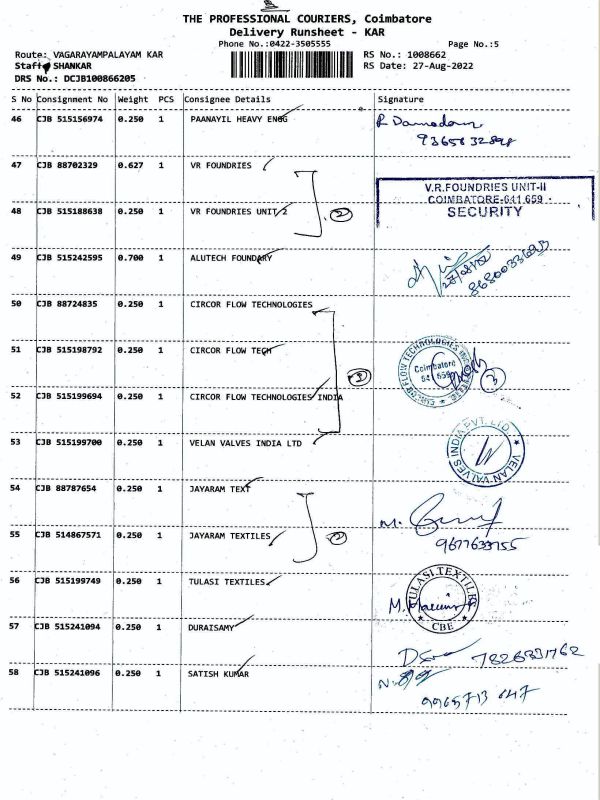 THE PROFESSIONAL COURIERS, Coimbatore
Delivery Runsheet - KAR
Phone No.:0422-3505555
Page No.:5
Route: VAGARAYAMPALAYAM KAR
RS No.: 1008662
Staff: SHANKAR
RS Date: 27-Aug-2022
DRS No.: DCJB100866205
S No Consignment No Weight PCS Consignee Details Signature
46 CJB 515156974 0.250 1 PAANAYIL HEAVY ENGG
R Damodaran
9365832898
47 CJB 88702329 0.627 1 VR FOUNDRIES
V.R.FOUNDRIES UNIT-II
COIMBATORE-641 659
SECURITY
48 CJB 515188638 0.250 1 VR FOUNDRIES UNIT 2
2
49 CJB 515242595 0.700 1 ALUTECH FOUNDARY
8680033693
50 CJB 88724835 0.250 1 CIRCOR FLOW TECHNOLOGIES
51 CJB 515198792 0.250 1 CIRCOR FLOW TECH
Coimbatore
641 659
3
52 CJB 515199694 0.250 1 CIRCOR FLOW TECHNOLOGIES INDIA
53 CJB 515199700 0.250 1 VELAN VALVES INDIA LTD
VELAN VALVES INDIA PVT. LTD.
54 CJB 88787654 0.250 1 JAYARAM TEXT
M.
55 CJB 514867571 0.250 1 JAYARAM TEXTILES
2
9677633155
56 CJB 515199749 0.250 1 TULASI TEXTILES
TULASI TEXTILES
CBE
57 CJB 515241094 0.250 1 DURAISAMY
7826831762
58 CJB 515241096 0.250 1 SATISH KUMAR
9965713647